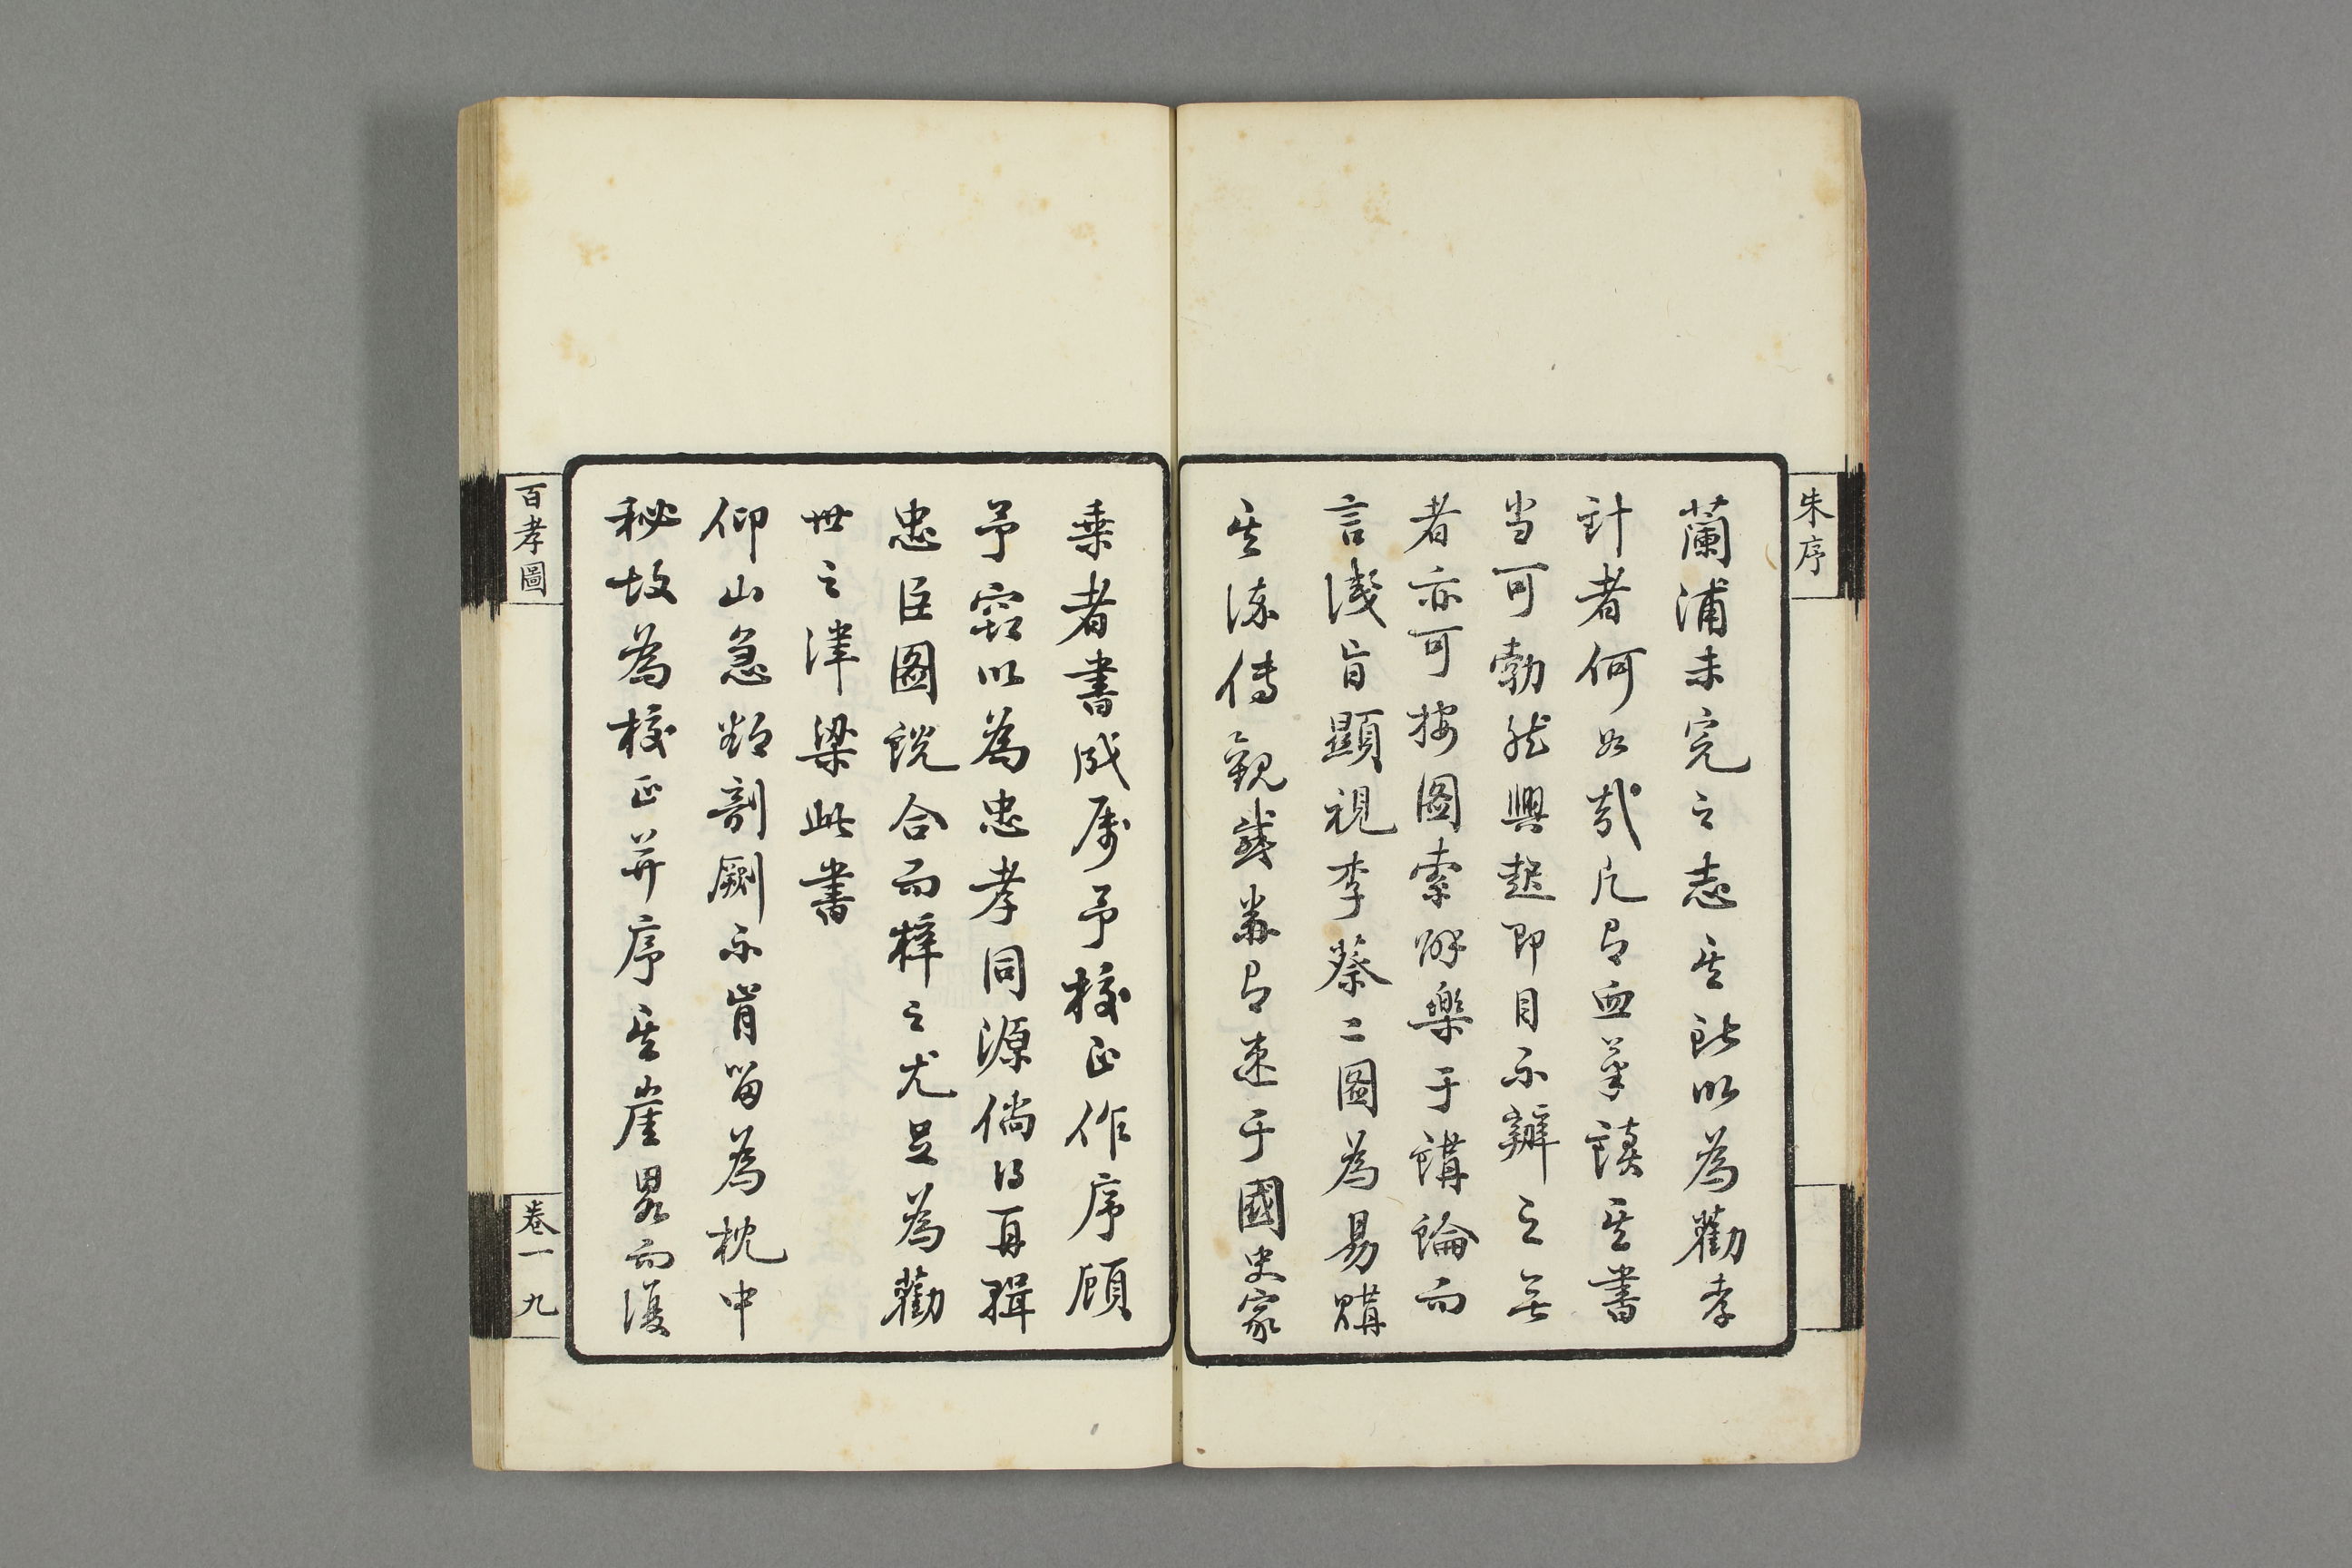 朱序
蘭浦未完之志其所以為勸孝
計者何如哉凡有血氣讀其書
当可勃然興起即目不辨之無
者亦可按圖索解樂于講論而
言淺旨顯視李蔡二圖為易購
其流傳觀感当有速于國史家
乘者書成属予校正作序顧
予竊以為忠孝同源倘得再輯
忠臣圖説合而梓之尤足為勸
世之津梁此書
仰山急欲剞劂不肯留為枕中
秘故為校正并序其崖畧而復
百孝圖
卷一 九